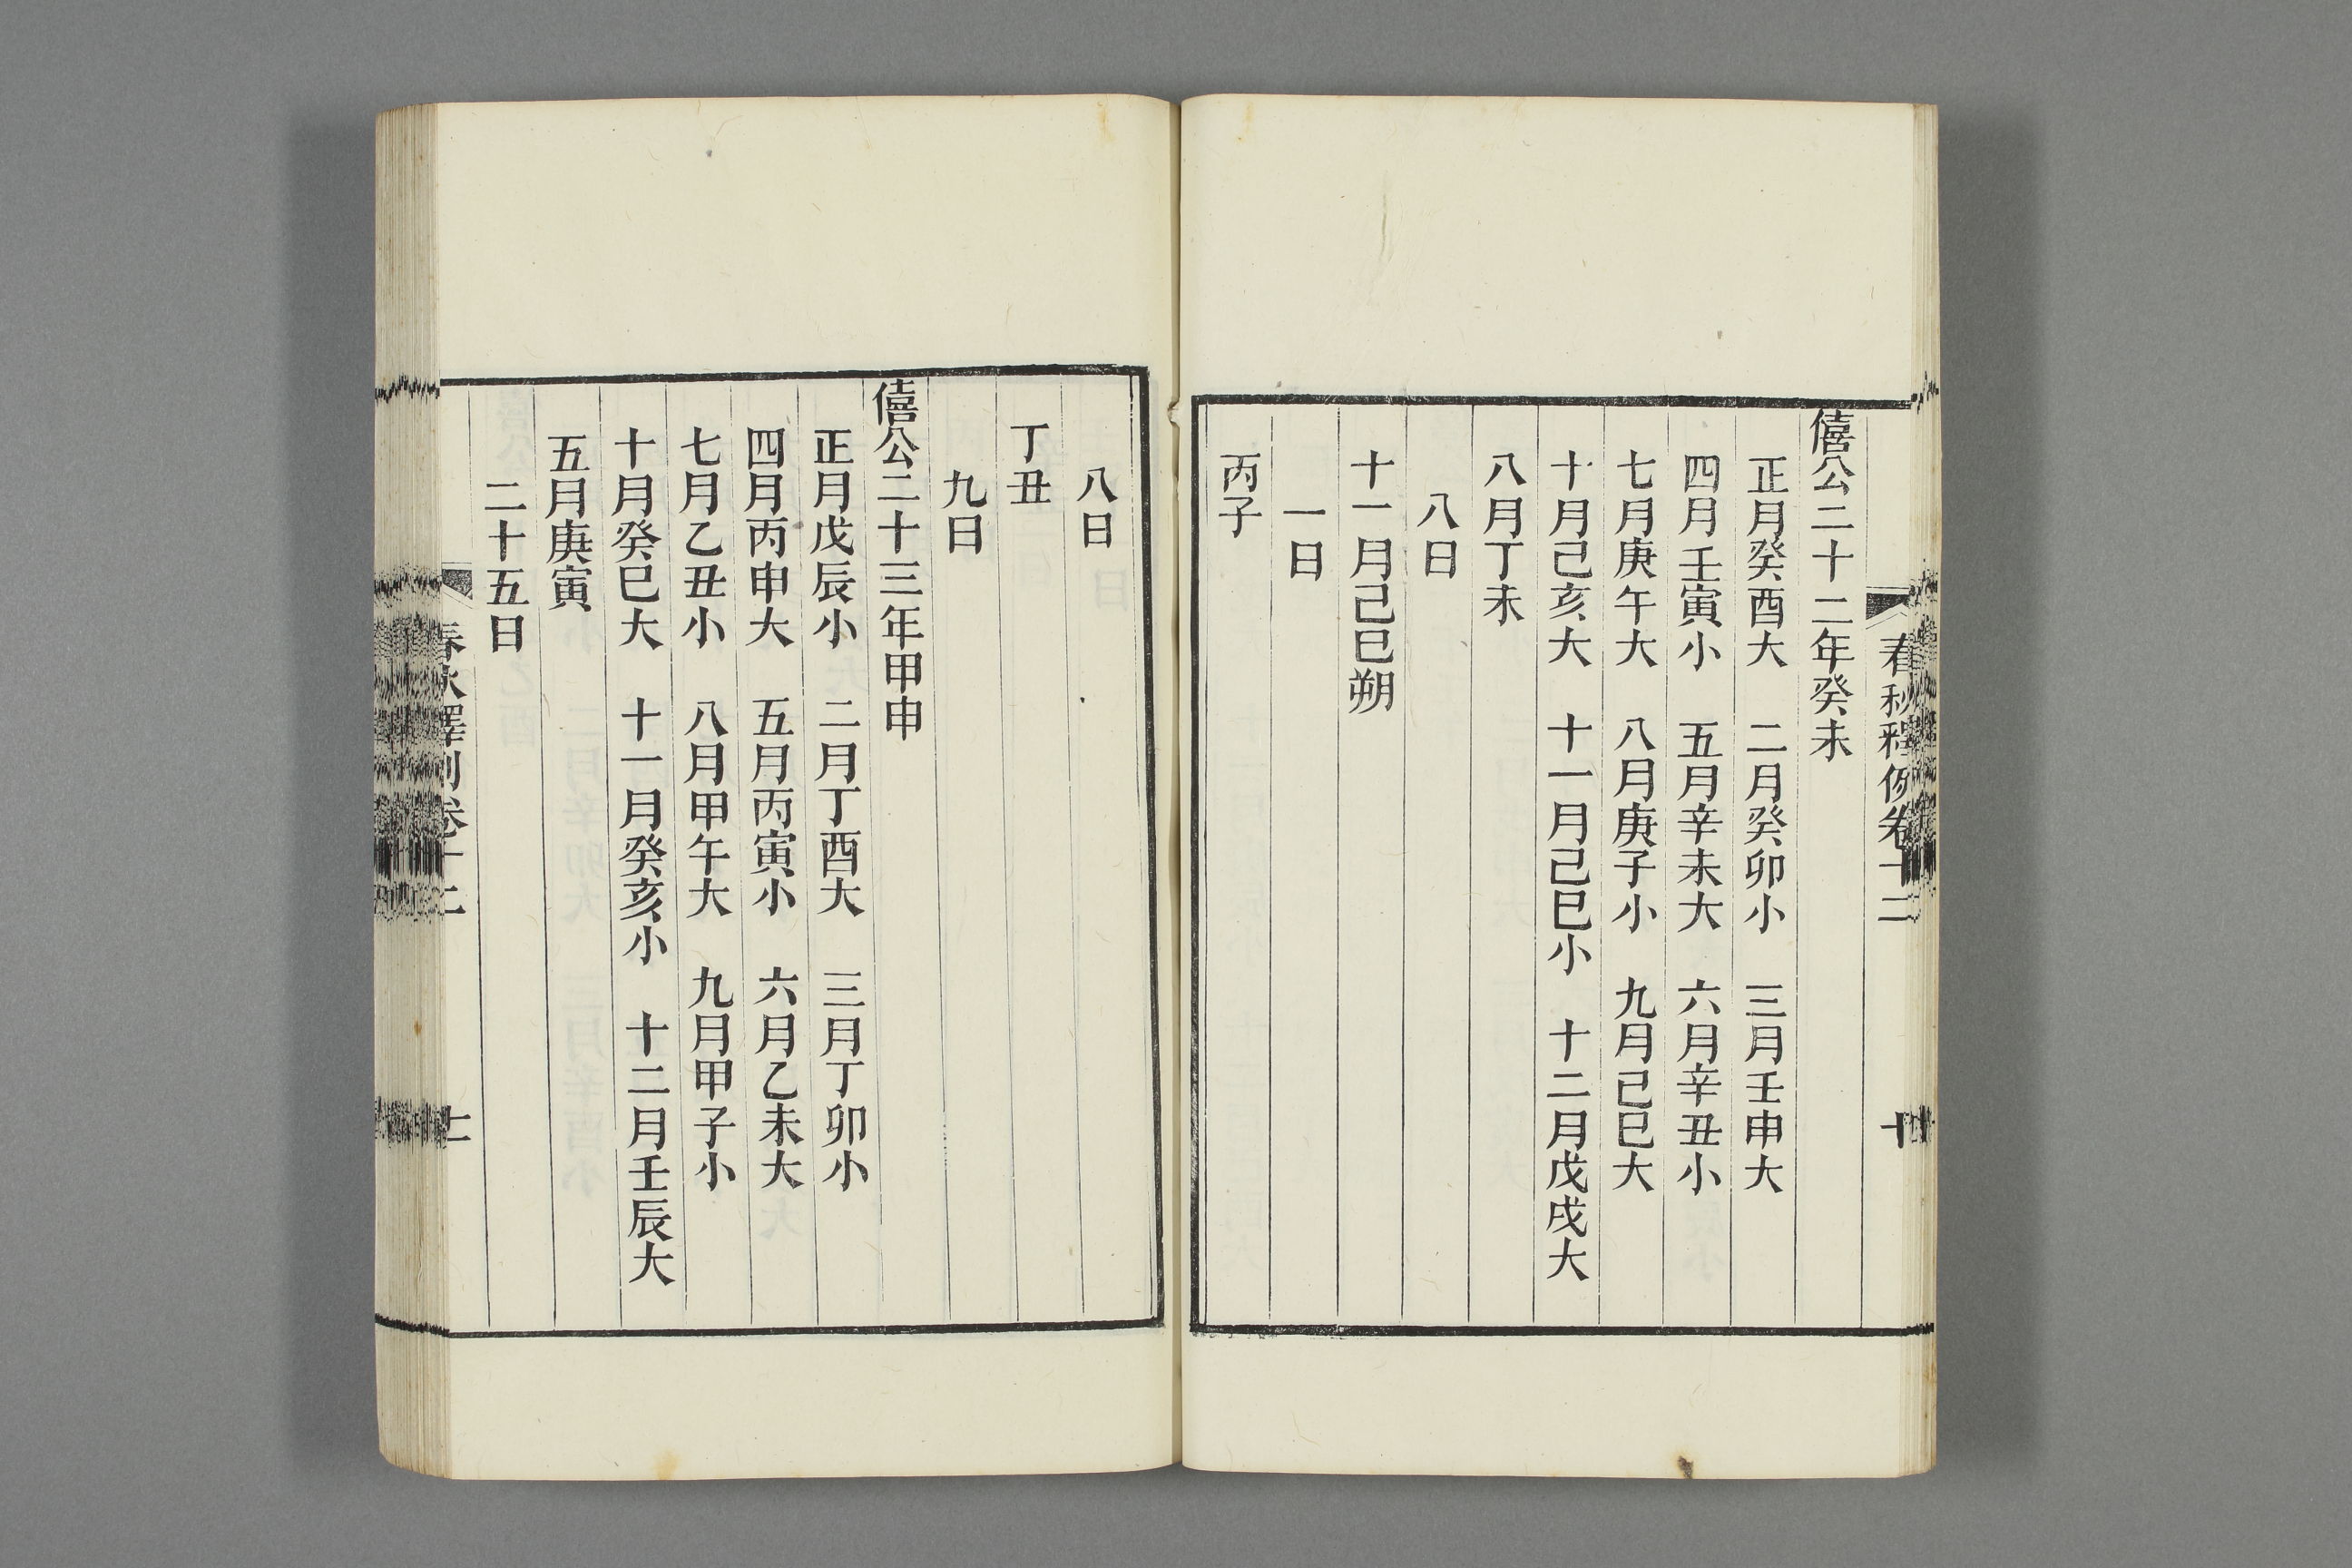 春秋釋例卷十二 十
僖公二十二年癸未
正月癸酉大 二月癸卯小 三月壬申大
四月壬寅小 五月辛未大 六月辛丑小
七月庚午大 八月庚子小 九月己巳大
十月己亥大 十一月己巳小 十二月戊戌大
八月丁未
八日
十一月己巳朔
一日
丙子
八日
丁丑
九日
僖公二十三年甲申
正月戊辰小 二月丁酉大 三月丁卯小
四月丙申大 五月丙寅小 六月乙未大
七月乙丑小 八月甲午大 九月甲子小
十月癸巳大 十一月癸亥小 十二月壬辰大
五月庚寅
二十五日
春秋釋例卷十二